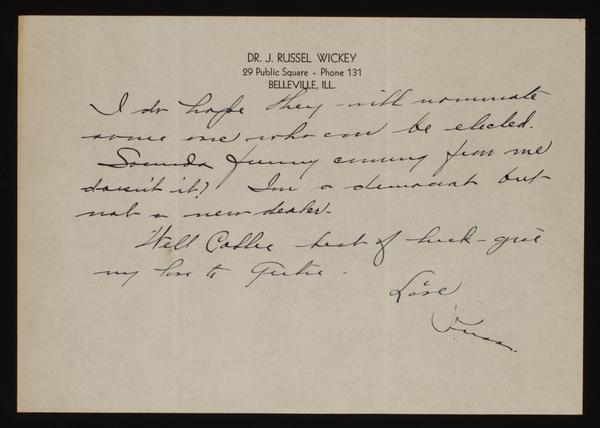 DR. J. RUSSEL WICKEY
29 Public Square - Phone 131
BELLEVILLE, ILL.
I do hope they will nominate
some one who can be elected.
Sounds funny coming from me
doesn't it? I'm a democrat but
not a new dealer.
Well best of luck - give
my love to
Love
Russ.